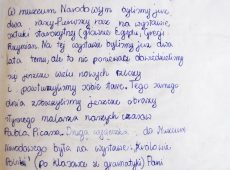 W muzeum Narodowym byliśmy już
dwa razy. Pierwszy raz na wystawie
sztuki starożytnej (głównie Egiptu, Grecji
Rzymian. Na tej wystawie byliśmy już dwa
lata temu, ale to nie dowiedzieliśmy
się jeszcze wielu nowych rzeczy
i powtórzyliśmy sobie stare. Tego samego
dnia zobaczyliśmy jeszcze obrazy
słynnego malarza naszych czasów
Pabla Picassa. Druga do Muzeum
Narodowego była na wystawie "
Polski" (po klasówce z gramatyki) Pani